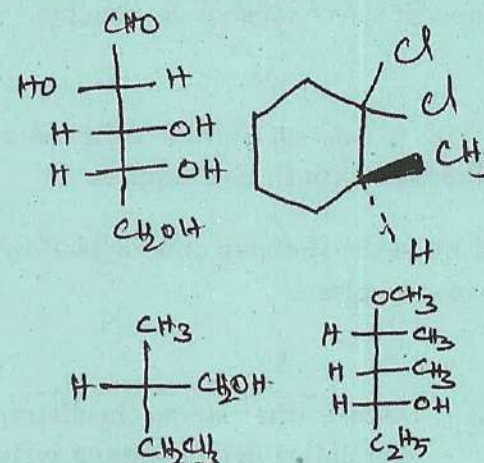 CHO
HO H
H OH
H OH
CH2OH
Cl
Cl
CH3
H
CH3
H CH2OH
CH2CH3
OCH3
H CH3
H CH3
H OH
C2H5